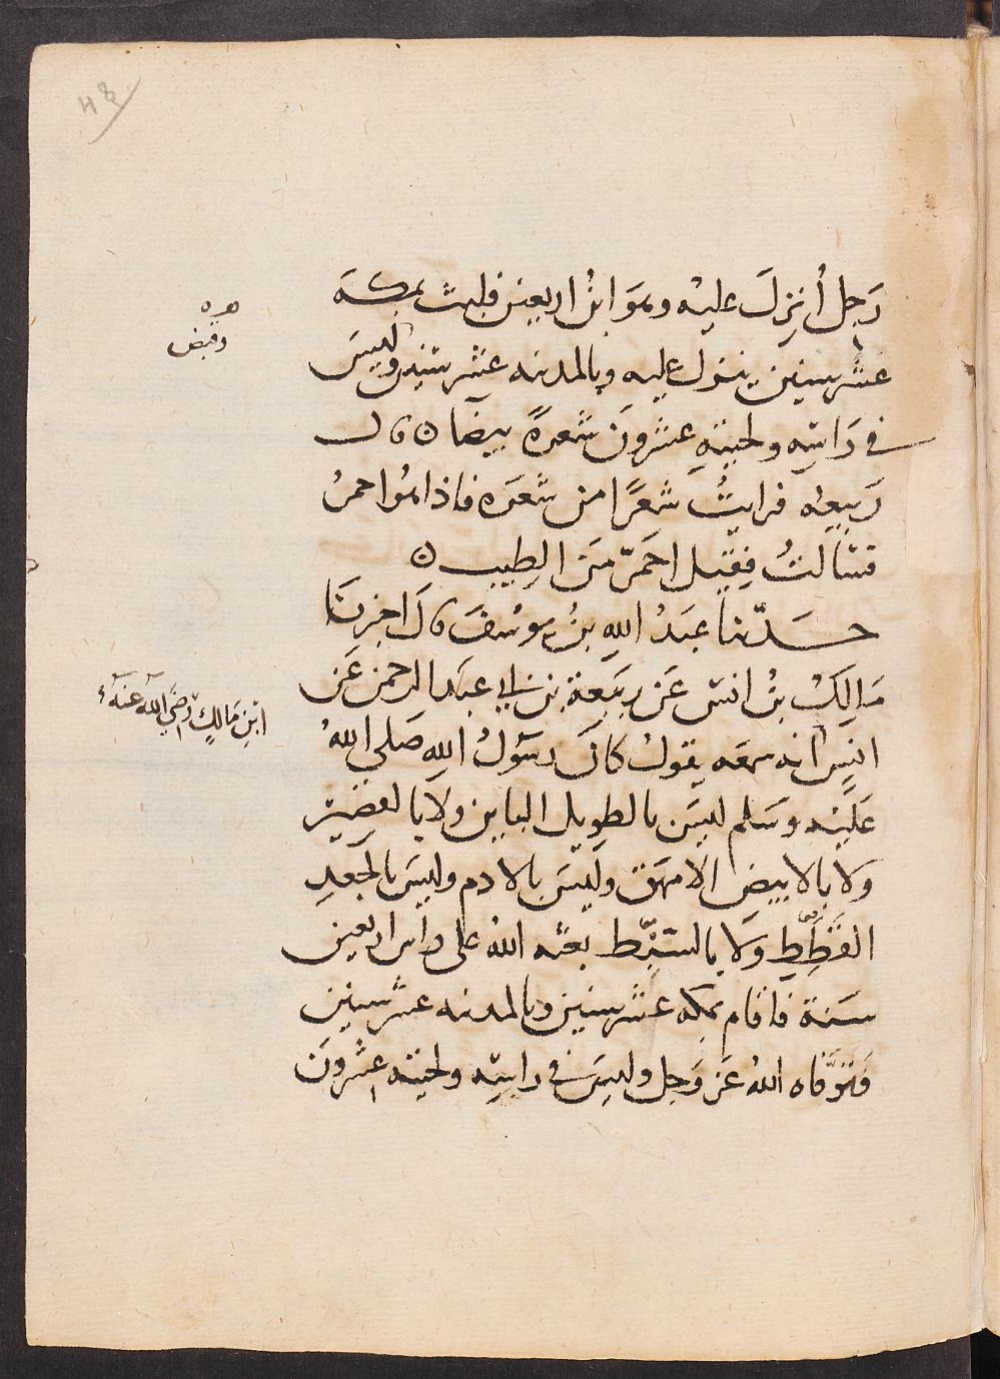 48
رَجِل أُنزِلَ عليه وهوَ ابنُ اربعين فلبث بمكة
عشر سنين ينزل عليه وبالمدينه عشر سنين وليسَ
في رَاسِه ولحيتِهِ عشرونَ شعرةً بيضا ٥ قال
رَبيعه فرايتُ شعرًا من شعَره فاذا هُوا حمرُ
فسالتُ فقيل احمَرّ مِنَ الطيب ٥
حَدّثنا عبدُ اللهِ بنُ يوسُفَ قالَ اخبرنَا
مَالِكُ بنُ انسٍ عَن ربيعة بن ابي عبد الرحمن عَن
انسٍ أنه سمعَه يقولُ كانَ رسولُ اللهِ صَلى اللهُ
عَليْه وسَلم ليسَ بالطويل الباين ولا بالقصير
وَلا بالابيض الامهَق وليسَ بالادم وليسَ بالجعدِ
القَطِطِ وَلا بالسَّبِطِ بعثه اللهُ على راس اربعين
سَنة فاقام بمكه عشر سنين وبالمدينه عشر سنين
فَتَوَفَّاه اللهُ عَز وَجل وليسَ في راسِه ولحيته عشرونَ
وقبض
ابنِ مَالِكٍ رَضيَ اللهُ عنهُ